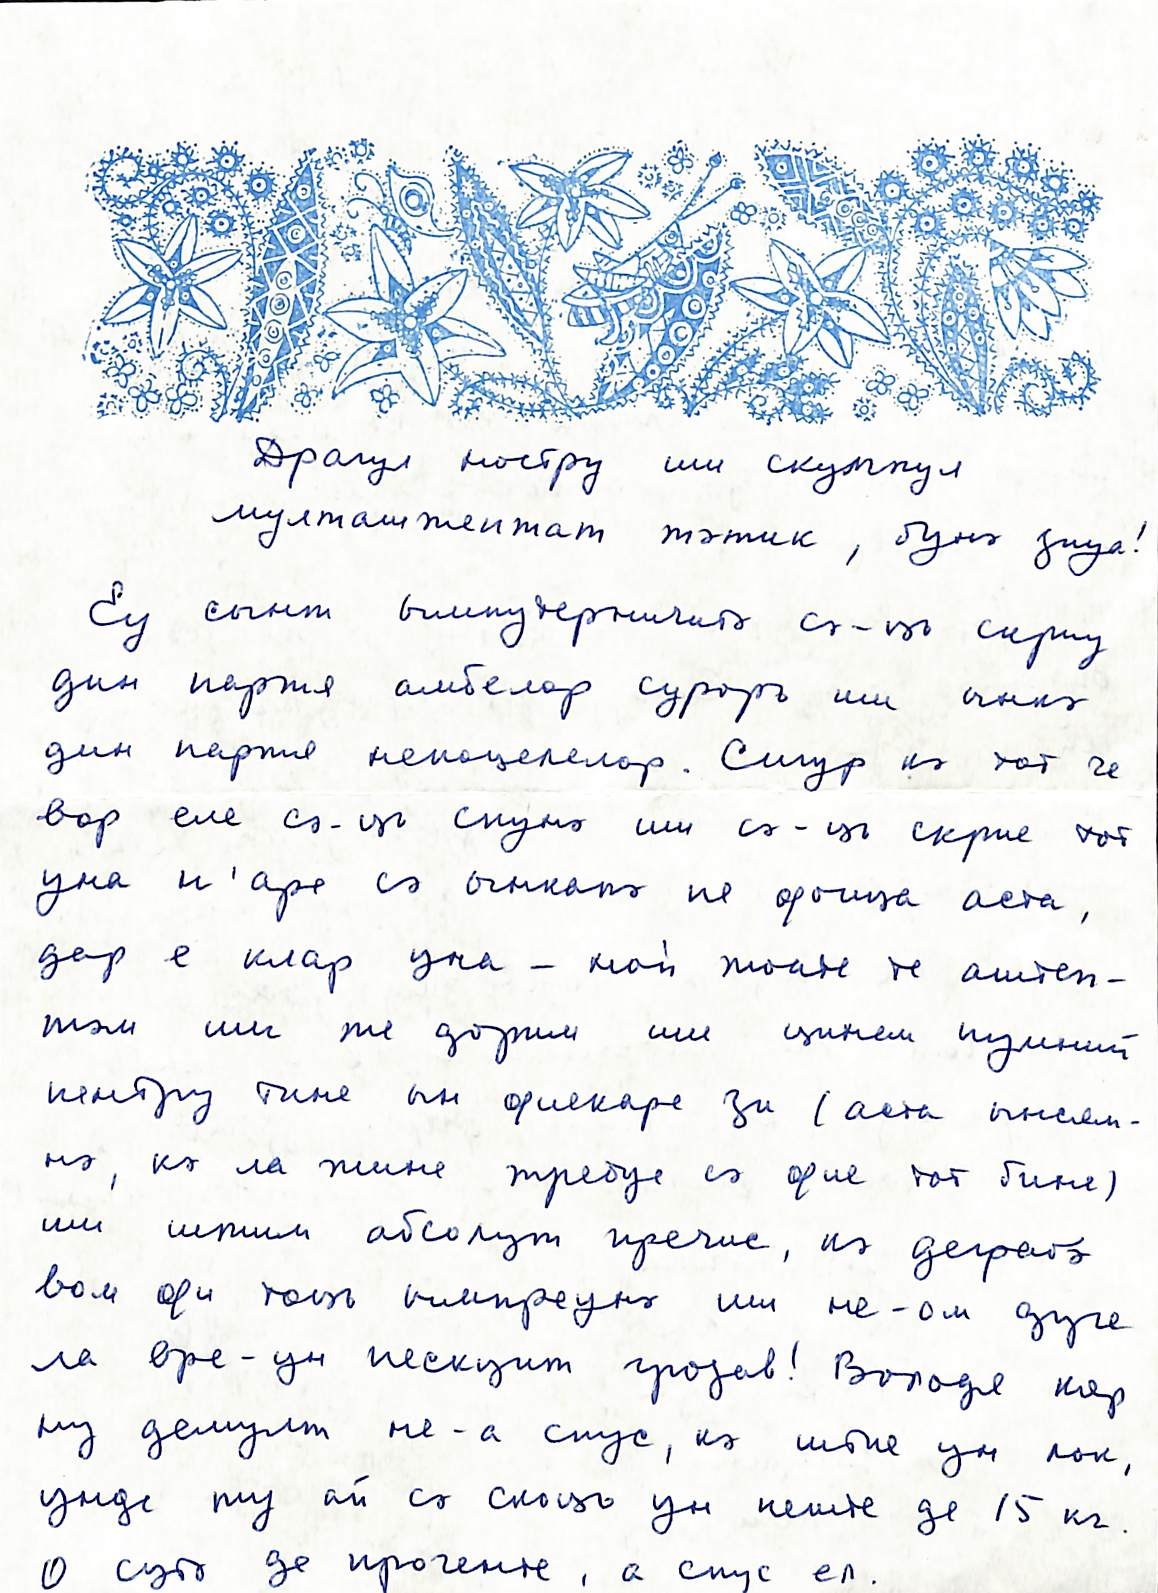 Драгул ностру ши скумпул
мулташтептат тэтик, бунэ зиуа!
Еу сынт ымпутерничитэ сэ-ць скриу
дин партя амбелор сурорь ши ынкэ
дин партя непоцелелор. Сигур кэ тот че
вор еле сэ-ць спунэ ши сэ-ць скрие тот
уна н'аре сэ ынкапэ пе фоица аста,
дар е клар уна - ной тоате те аштеп-
тэм ши те дорим ши цинем пумний
пентру тине ын фиекаре зи (аста ынсям-
нэ, кэ ла тине требуе сэ фие тот бине)
ши штим абсолутречис, кэ деграбэ
вом фи тоць ымпреунэ ши не-ом дуче
ла вре-ун пескуит грозав! Володя кяр
ну демулт не-а спус, кэ штие ун лок,
унде ту ай сэ скоць ун пеште де 15 кг.
О сутэ де проченте, а спус ел.